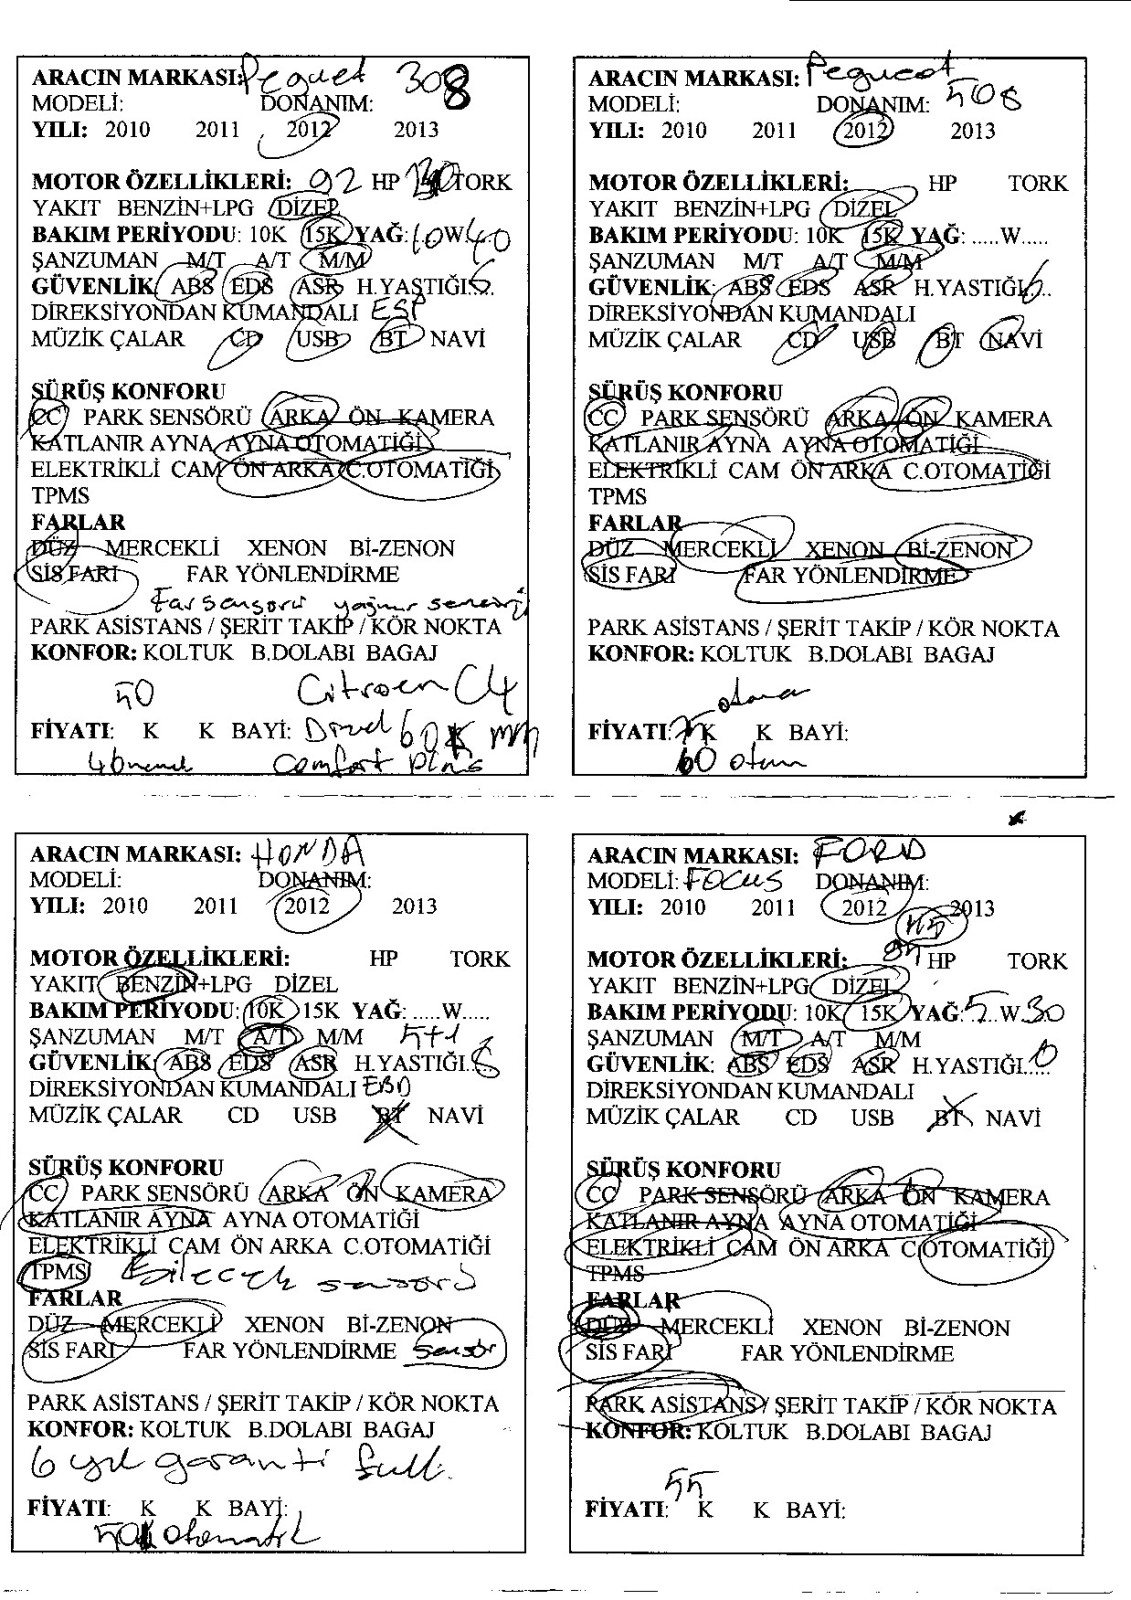 ARACIN MARKASI: Peguet 308
MODELİ: DONANIM:
YILI: 2010 2011 2012 2013
MOTOR ÖZELLİKLERİ: 92 HP TORK
YAKIT BENZİN+LPG DİZEL
BAKIM PERİYODU: 10K 15K YAĞ: 10W40
ŞANZUMAN M/T A/T M/M
GÜVENLİK: ABS EDS ASR H.YASTIĞI
DİREKSİYONDAN KUMANDALI ESP
MÜZİK ÇALAR CD USB BT NAVİ
SÜRÜŞ KONFORU
CC PARK SENSÖRÜ ARKA ÖN KAMERA
KATLANIR AYNA AYNA OTOMATİĞİ
ELEKTRİKLİ CAM ÖN ARKA C.OTOMATİĞİ
TPMS
FARLAR
DÜZ MERCEKLİ XENON Bİ-ZENON
SİS FARI FAR YÖNLENDİRME
Far sensörü yağmur sensörü
PARK ASİSTANS / ŞERİT TAKİP / KÖR NOKTA
KONFOR: KOLTUK B.DOLABI BAGAJ
50 Citroen C4
FİYATI: K K BAYİ: Dizel 60K
Comfort Plus
ARACIN MARKASI: Pegueot
MODELİ: DONANIM: 508
YILI: 2010 2011 2012 2013
MOTOR ÖZELLİKLERİ: HP TORK
YAKIT BENZİN+LPG DİZEL
BAKIM PERİYODU: 10K 15K YAĞ: .....W.....
ŞANZUMAN M/T A/T M/M
GÜVENLİK: ABS EDS ASR H.YASTIĞI 6
DİREKSİYONDAN KUMANDALI
MÜZİK ÇALAR CD USB BT NAVİ
SÜRÜŞ KONFORU
CC PARK SENSÖRÜ ARKA ÖN KAMERA
KATLANIR AYNA AYNA OTOMATİĞİ
ELEKTRİKLİ CAM ÖN ARKA C.OTOMATİĞİ
TPMS
FARLAR
DÜZ MERCEKLİ XENON Bİ-ZENON
SİS FARI FAR YÖNLENDİRME
PARK ASİSTANS / ŞERİT TAKİP / KÖR NOKTA
KONFOR: KOLTUK B.DOLABI BAGAJ
FİYATI: 75 K K BAYİ:
60
ARACIN MARKASI: HONDA
MODELİ: DONANIM:
YILI: 2010 2011 2012 2013
MOTOR ÖZELLİKLERİ: HP TORK
YAKIT BENZİN+LPG DİZEL
BAKIM PERİYODU: 10K 15K YAĞ: .....W.....
ŞANZUMAN M/T A/T M/M 5+1
GÜVENLİK: ABS EDS ASR H.YASTIĞI
DİREKSİYONDAN KUMANDALI EBD
MÜZİK ÇALAR CD USB BT NAVİ
SÜRÜŞ KONFORU
CC PARK SENSÖRÜ ARKA ÖN KAMERA
KATLANIR AYNA AYNA OTOMATİĞİ
ELEKTRİKLİ CAM ÖN ARKA C.OTOMATİĞİ
TPMS Bilecek sensörü
FARLAR
DÜZ MERCEKLİ XENON Bİ-ZENON
SİS FARI FAR YÖNLENDİRME sensör
PARK ASİSTANS / ŞERİT TAKİP / KÖR NOKTA
KONFOR: KOLTUK B.DOLABI BAGAJ
6 yıl garanti full.
FİYATI: K K BAYİ:
50K otomatik
ARACIN MARKASI: FORD
MODELİ: FOCUS DONANIM:
YILI: 2010 2011 2012 2013
115
MOTOR ÖZELLİKLERİ: 95 HP TORK
YAKIT BENZİN+LPG DİZEL
BAKIM PERİYODU: 10K 15K YAĞ: 5 W 30
ŞANZUMAN M/T A/T M/M
GÜVENLİK: ABS EDS ASR H.YASTIĞI
DİREKSİYONDAN KUMANDALI
MÜZİK ÇALAR CD USB BT NAVİ
SÜRÜŞ KONFORU
CC PARK SENSÖRÜ ARKA ÖN KAMERA
KATLANIR AYNA AYNA OTOMATİĞİ
ELEKTRİKLİ CAM ÖN ARKA C.OTOMATİĞİ
TPMS
FARLAR
DÜZ MERCEKLİ XENON Bİ-ZENON
SİS FARI FAR YÖNLENDİRME
PARK ASİSTANS / ŞERİT TAKİP / KÖR NOKTA
KONFOR: KOLTUK B.DOLABI BAGAJ
55
FİYATI: K K BAYİ: